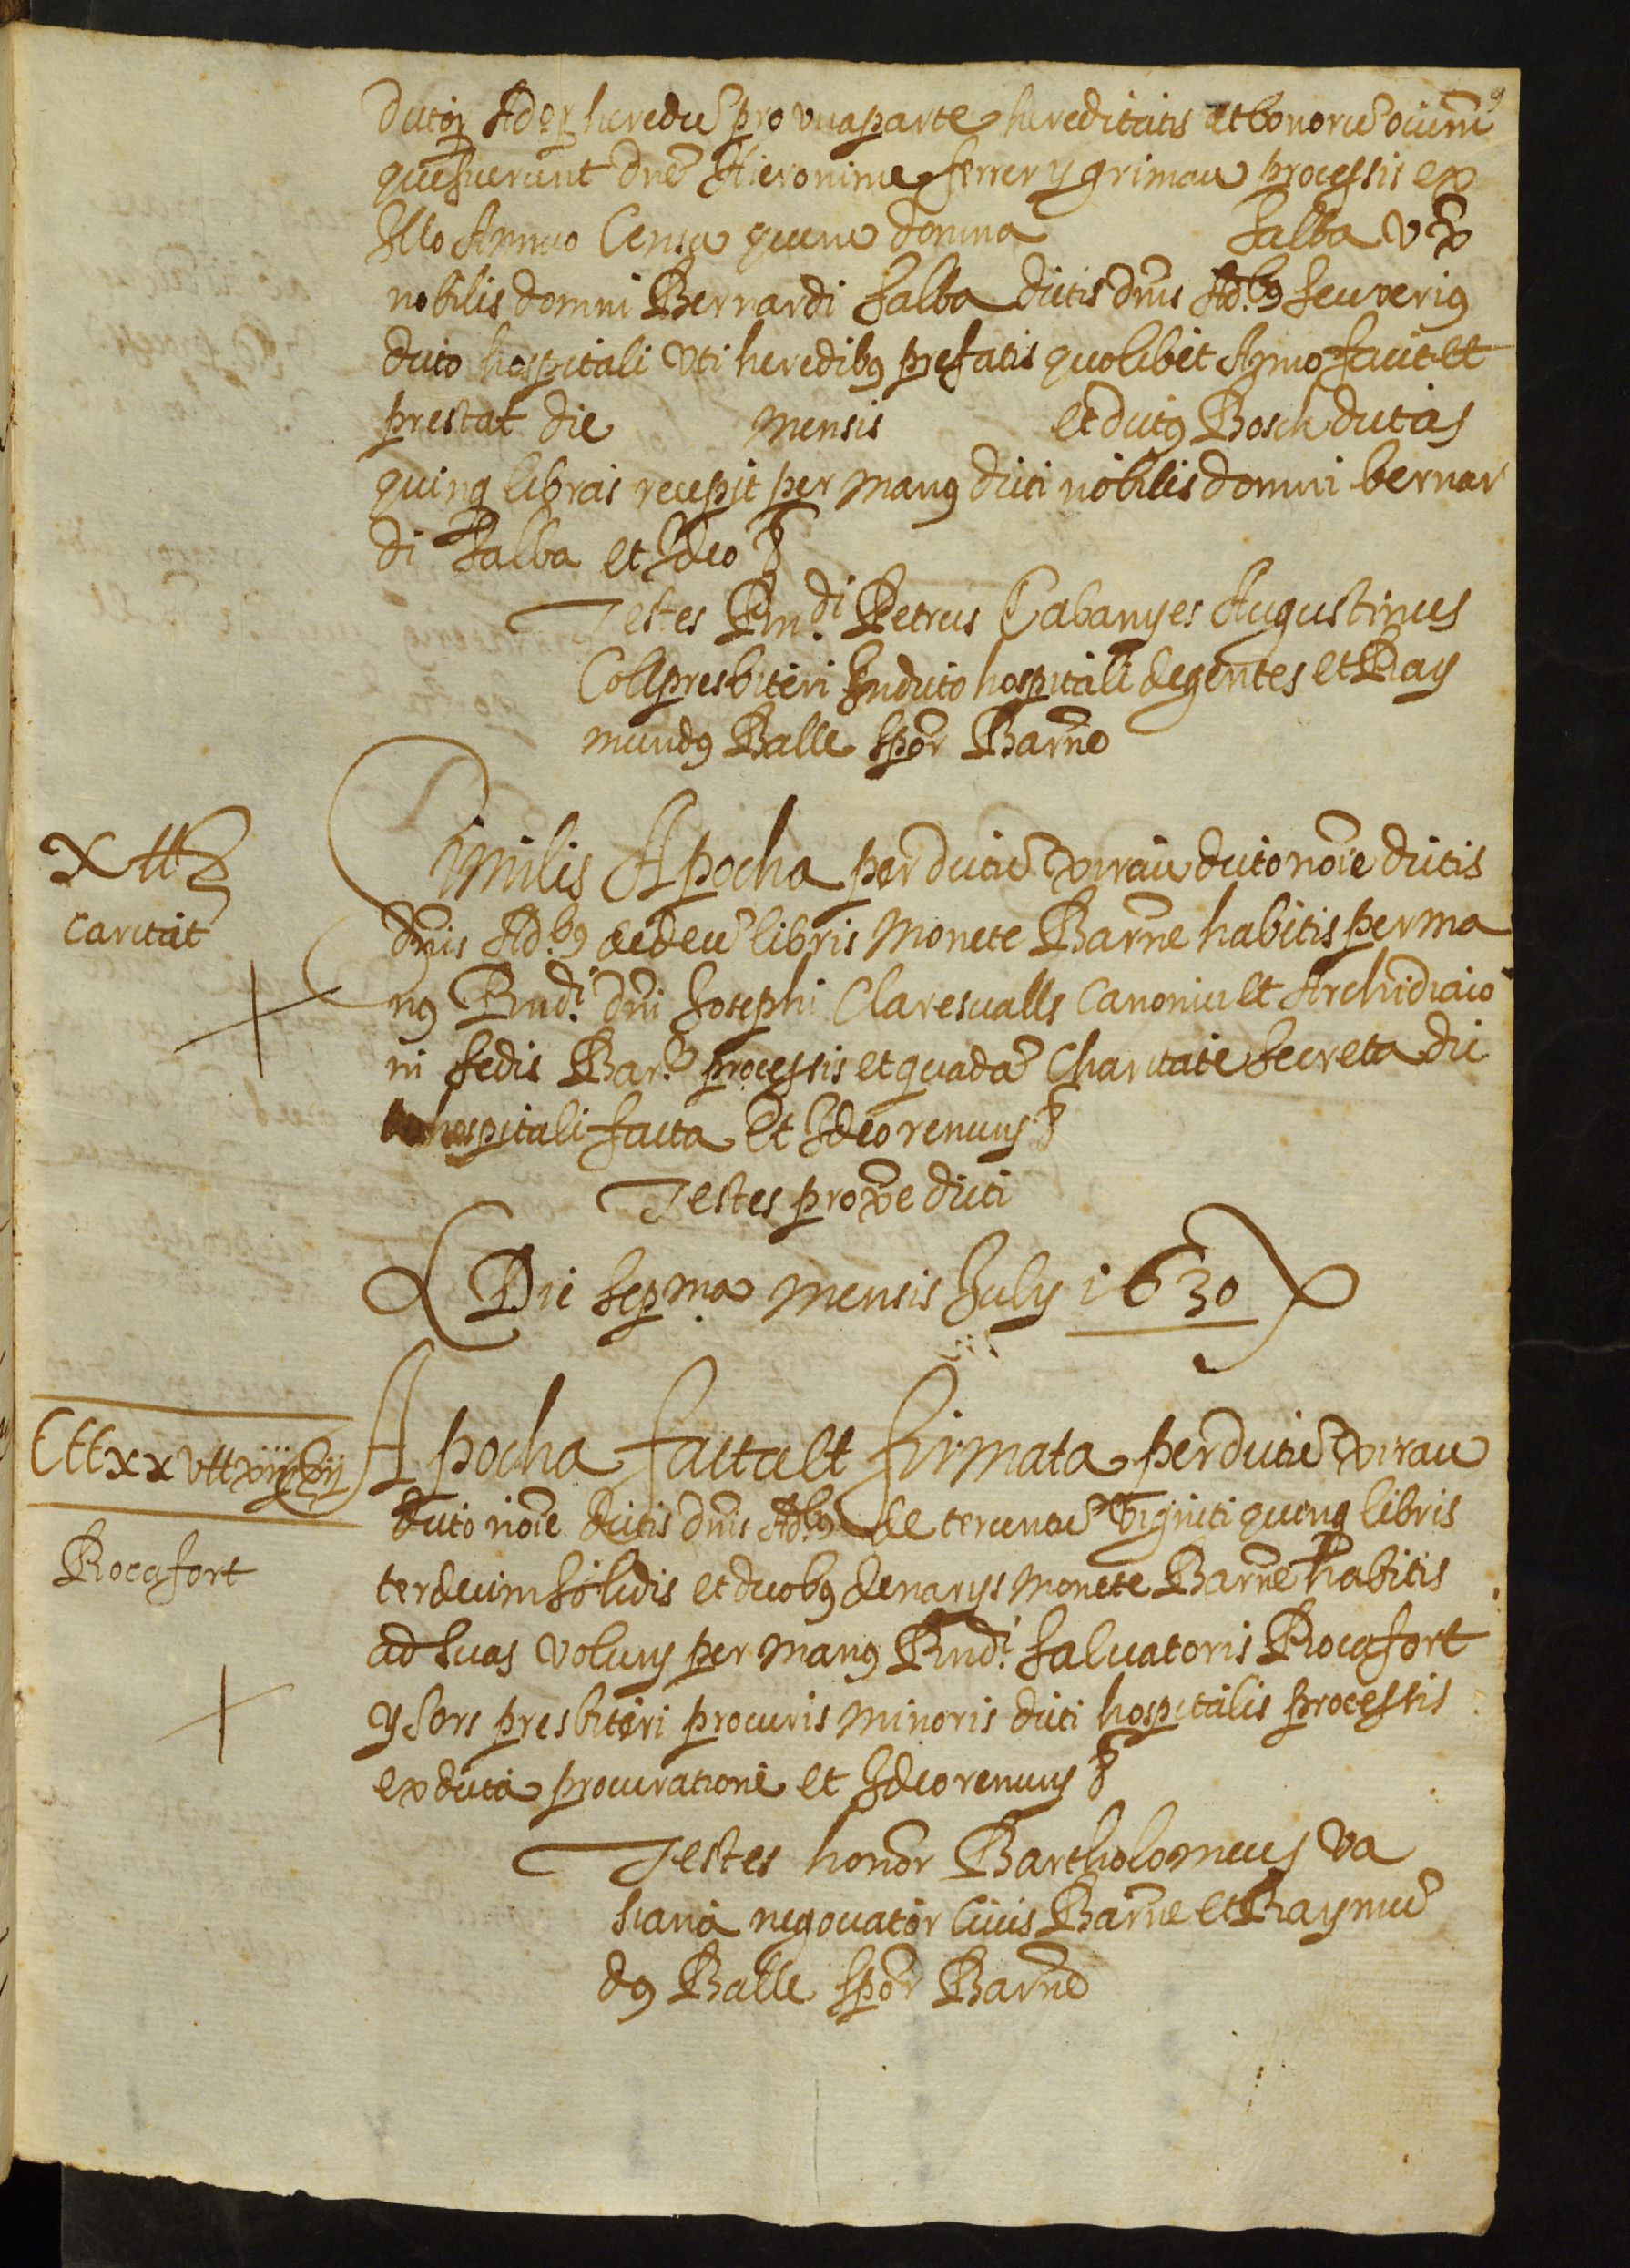 dictor Ador heredū pro vna parte hereditatis et bonorū oium
que fuerunt dnē Hieronime ferrer y grimau processis ex
Illo Annuo Censu quem domina Salba vx̄
nobilis domni Bernardi Salba dictis dnīs Ad.bꝯ seu verius
dicto hospitali Vti heredibꝯ prefatis quolibet Anno facit et
prestat die mensis et dictꝯ Bosch dictas
quinq libras recepit per manꝯ dicti nobilis domni bernar
di Salba et Ideo &
Testes Rnd.i Petrus Cabanyes Augustinus
Coll presbiteri In dicto hospitali degentes et Ray
mundꝯ Balle spōr Barnē
X ttȝ
caritat
Similis Apocha per dictū virau dicto noīe dictis
dnīs Ad.bꝯ de decē libris monete Barnē habitis per ma
nꝯ Rnd.i dnī Josephi Claresvalls Canonici et Archidiaco
ni sedis Bar.e processis et quadā Charitate secreta dic
to hospitali facta et Ideo renuns &
Testes proxē dicti
Die sepma mensis July 1630
Cttxxvttxiijsij
Rocafort
Apocha facta et firmata per dictū virau
dicto noīe dictis dnīs Ad.bꝯ de tercentū viginti quinq libris
terdecim solidis et duobꝯ denarys monete Barnē habitis
ad suas voluns per manꝯ Rnd.i Saluatoris Rocafort
y Sors presbiteri procuris minoris dicti hospitalis processis
ex dicta procuratione et Ideo renuns &
Testes honōr Bartholomeus Va
siana negociator Ciuis Barnē et Raymū
dꝯ Balle spōr Barnē